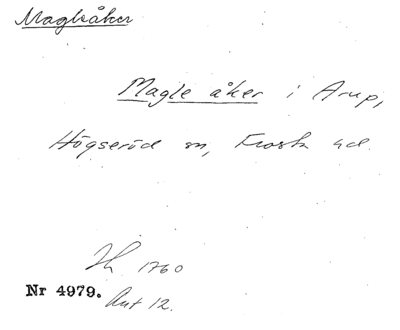 Magleåker
Magle åker i Arup,
Högseröd sn, Frosta hd.
Lh 1760
Nr 4979.
Akt 12.